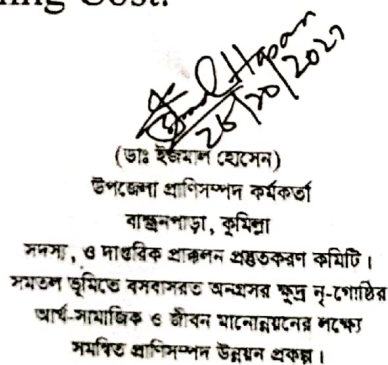 ning Cost.
(ডাঃ ইজমাল হোসেন)
উপজেলা প্রাণিসম্পদ কর্মকর্তা
ব্রাহ্মনপাড়া, কুমিল্লা
সদস্য, ও দাপ্তরিক প্রাক্কলন প্রস্তুতকরণ কমিটি।
সমতল ভূমিতে বসবাসরত অনগ্রসর ক্ষুদ্র নৃ-গোষ্ঠির
আর্থ-সামাজিক ও জীবন মানোন্নয়নের লক্ষ্যে
সমন্বিত প্রাণিসম্পদ উন্নয়ন প্রকল্প।